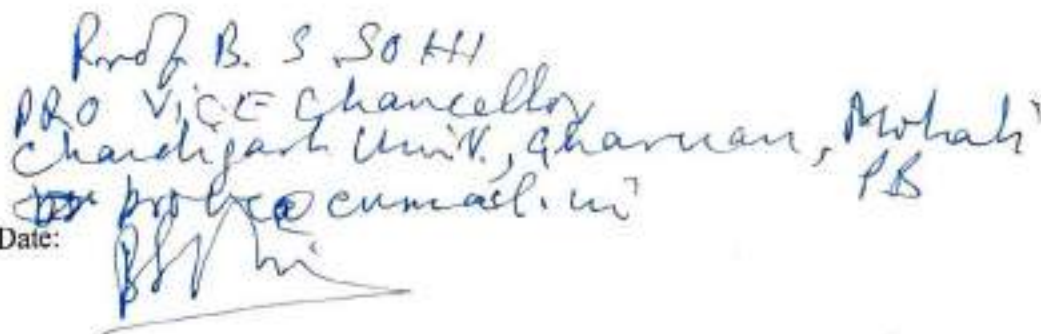 Prof. B. S. SOHI
PRO VICE Chancellor
Chandigarh Univ., Gharuan, Mohali
PB
provc@cumail.in
Date: